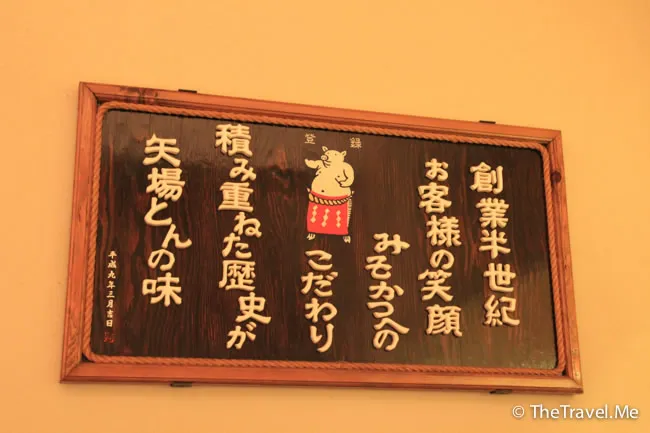 創業半世紀
お客様の笑顔
みそかつへの
登録
こだわり
積み重ねた歴史が
矢場とんの味
平成九年三月吉日
© TheTravel.Me